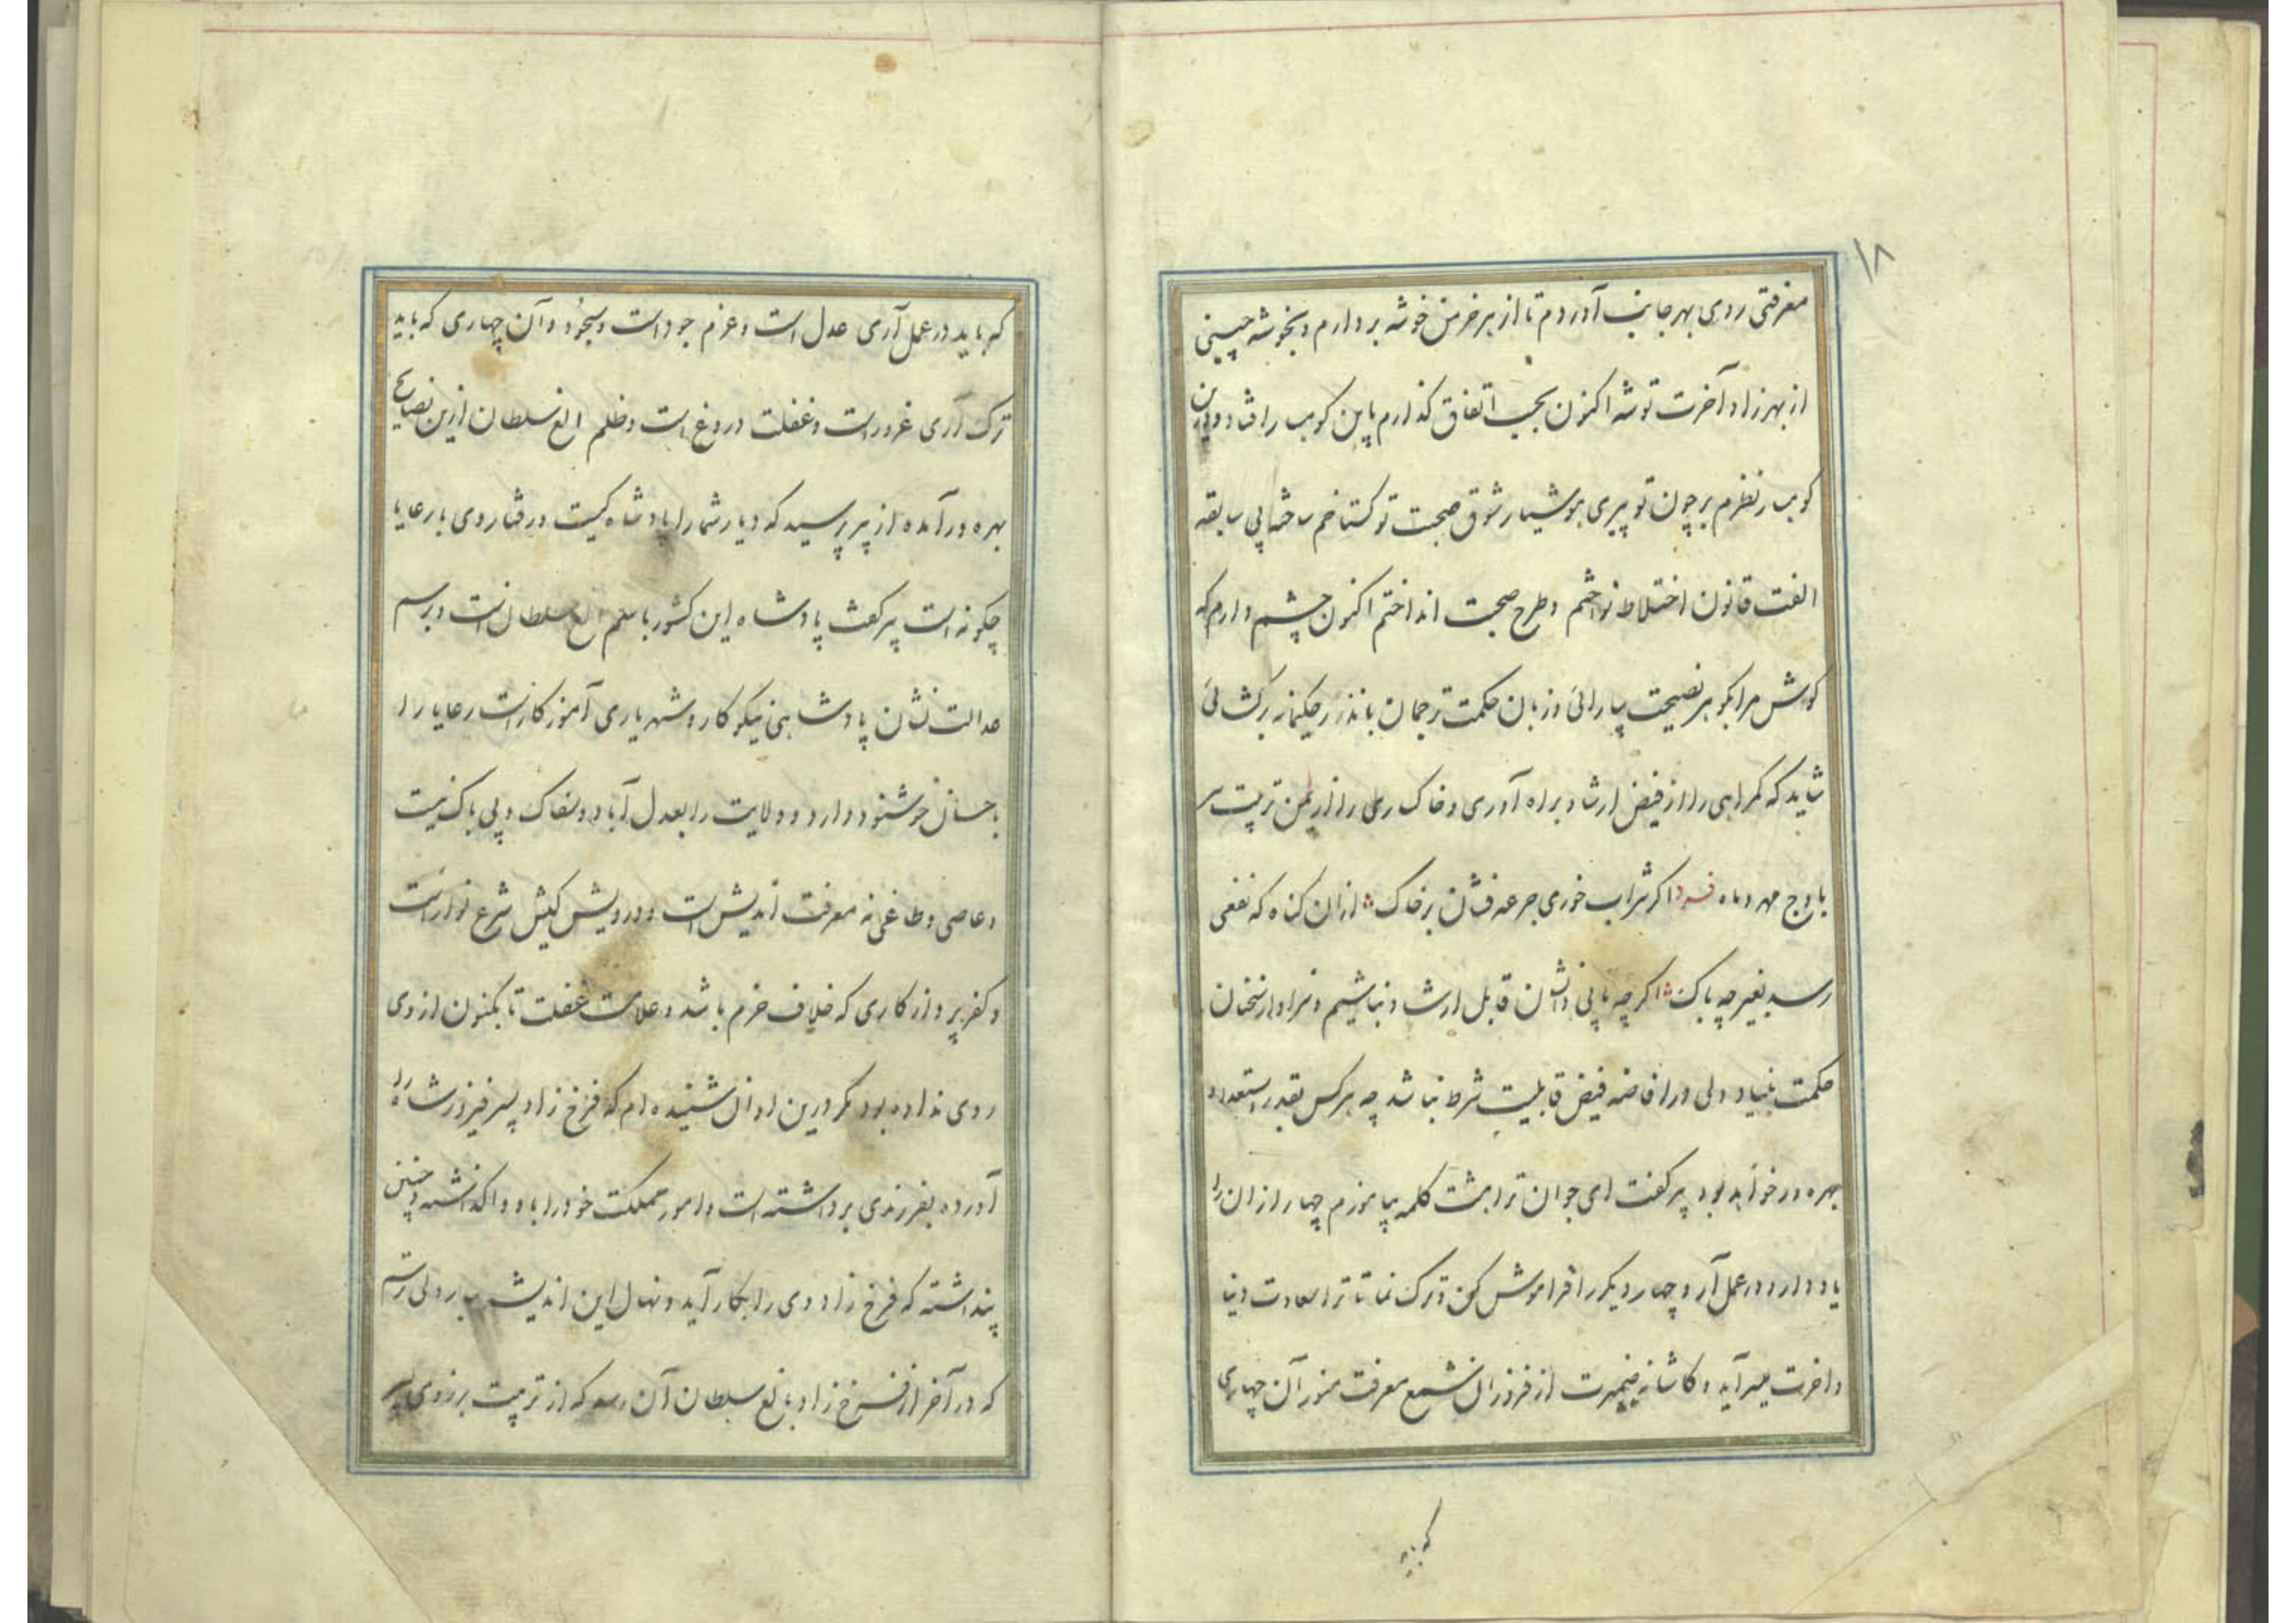 ۱۸
معرفتی روی بهر جانب آوردم تا از هر خرمن خوشه بردارم و بخوشه چینی
از بهر زاد آخرت توشه اکنون بحسب اتفاق گذارم باین کوی
کوی بر نظرم پر چون تو پیری هوشیار شوق صحبت تو گستاخم ساخته بی سابقه
الفت قانون اختلاط نواختم و طرح صحبت انداختم اکنون چشم دارم که
کوش مرا بکوهر نصیحت بیارائی و زبان حکمت ترجمان باندرز حکیمانه برکشائی
شاید که کمراهی را از فیض ارشاد براه آوری و خاک رهی را از یمن تربیت سر
باوج مهر و ماه فرد اکر شراب خوری جرعه فشان بر خاک از ان کناه که نفعی
رسد بغیر چه باک اکر چه قابل ارشاد نباشیم و سزاوار سخنان
حکمت بنیاد ولی در افاضه فیض قابلیت شرط نباشد چه هر کس بقدر استعداد
بهره ور خواهد بود پیر کفت ای جوان ترا هشت کلمه بیاموزم چهار از ان را
یاد دار و در عمل آر و چهار دیکر را فراموش کن و ترک نما تا ترا سعادت دنیا
و اخرت میسر آید و کاشانه ضمیرت از فروزان شمع معرفت منور آن چهاری
که باید
که باید در عمل آری عدل است و عزم جود است و آن چهاری که باید
ترک آری غرور است و غفلت دروغ است و ظلم الغ سلطان ازین نصایح
بهره ور آمده از پیر پرسید که دیار شما را پادشاه کیست و رفتار وی با رعایا
چکونه است پیر کفت پادشاه این کشور باسم الغ سلطان است و برسم
عدالت نشان پادشاهی نیکو کار و شهریاری آموزکار است رعایا را
باحسان خوشنود دارد و ولایت را بعدل آباد و سفاک و بی باک نیست
و عاصی و طاغی نه معرفت اندیش است و درویش کیش شرع نواز است
و کفر پرداز کاری که خلاف حزم باشد و علامت غفلت تا بکنون از وی
روی نداده بود مکر درین اوان شنیده ام که فرخ زاد پسر فیروز شاه را
آورده بفرزندی برداشته است و امور مملکت خود را باو واکذاشته و چنین
پنداشته که فرخ زاد وی را بکار آید و نهال این اندیشه ببار ولی ترسم
که در آخر از فرخ زاد بالغ سلطان آن رسد که از تربیت برزوی